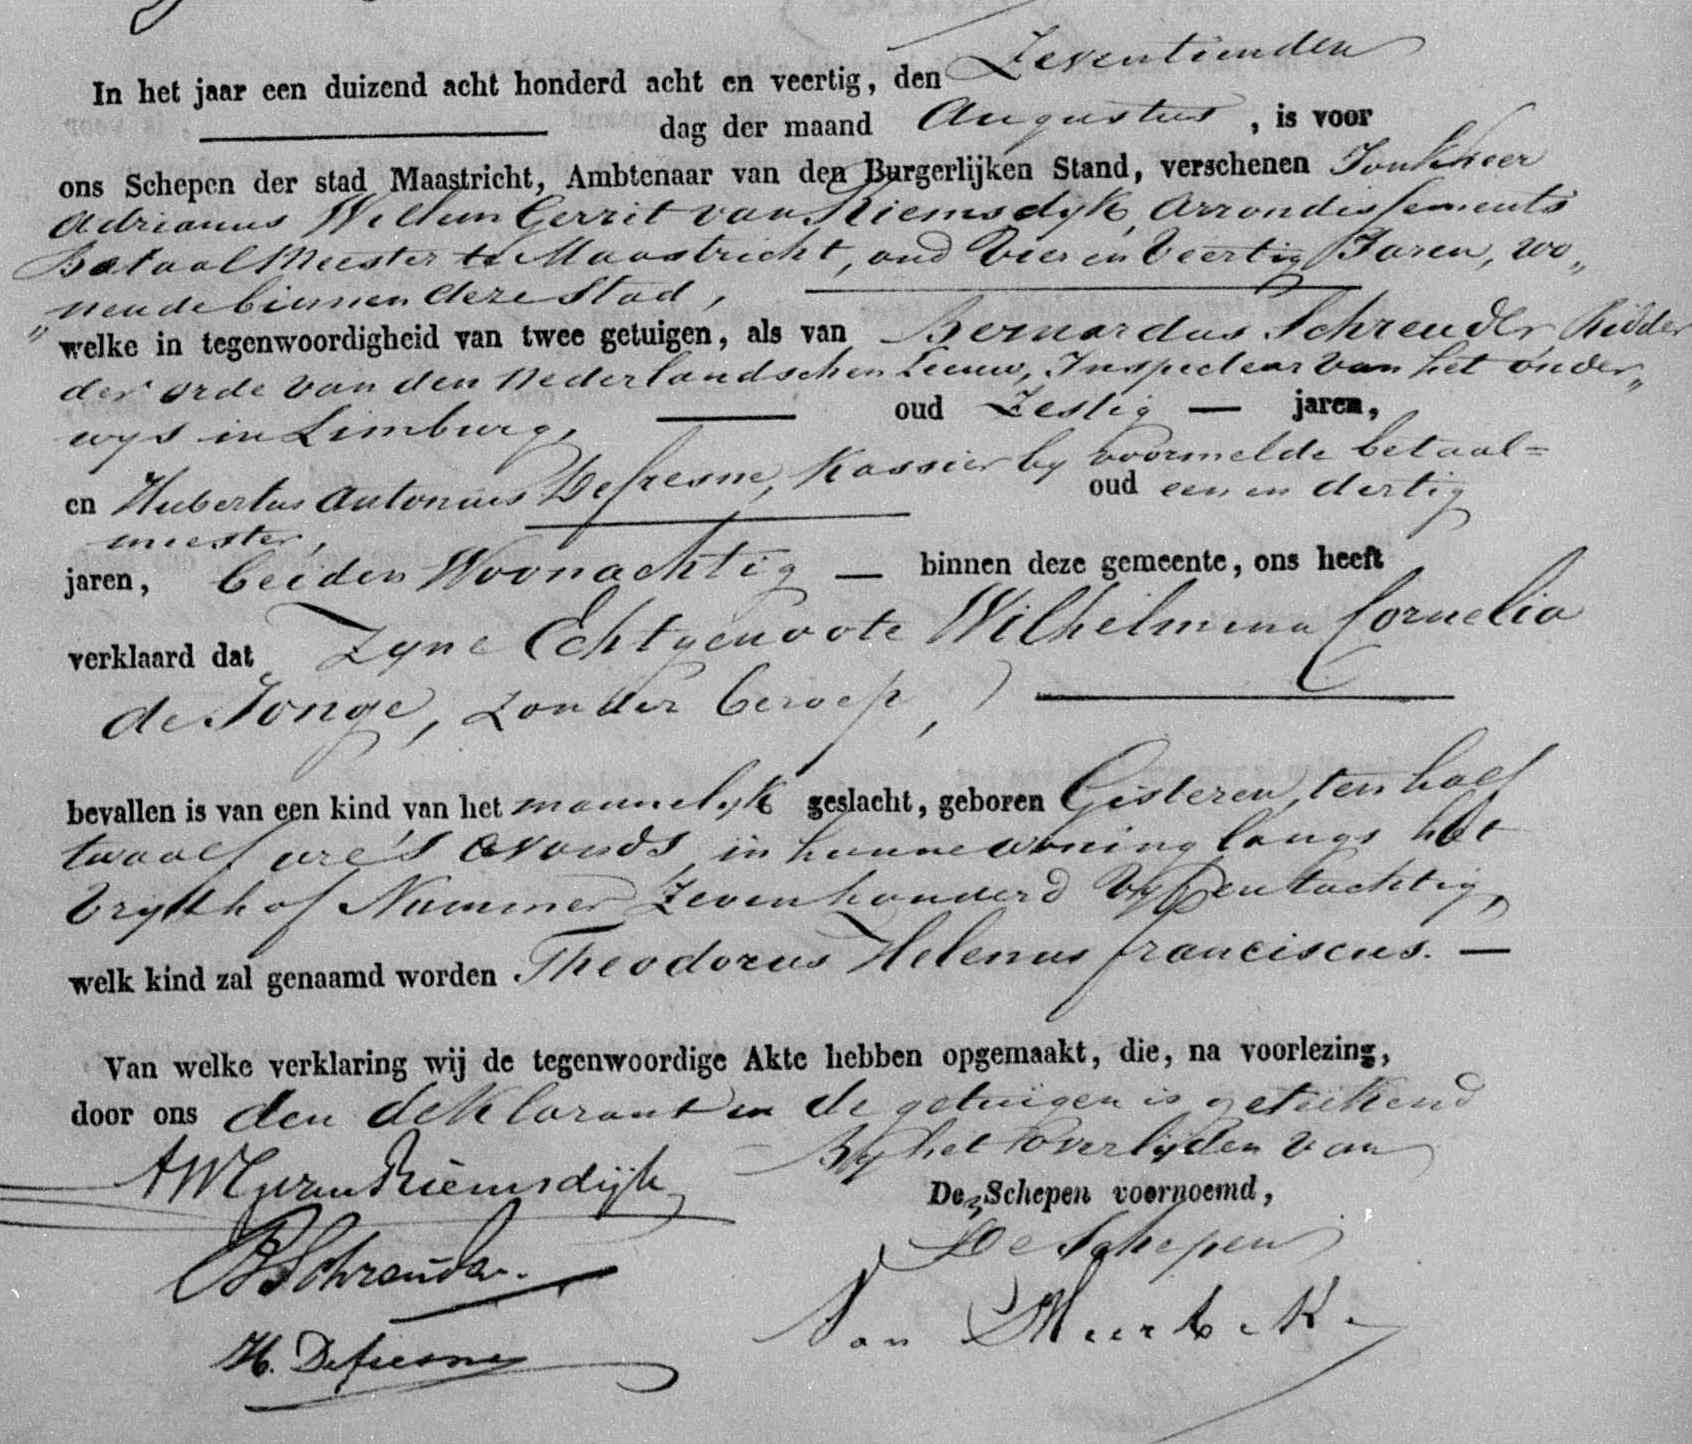 In het jaar een duizend acht honderd acht en veertig, den Zeventienden
dag der maand Augustus, is voor
ons Schepen der stad Maastricht, Ambtenaar van den Burgerlijken Stand, verschenen Jonkheer
Adrianus Willem Gerrit van Riemsdyk, Arrondissements
Betaal Meester te Maastricht, oud Vier en Veertig Jaren, wo„
nende binnen deze Stad,
„welke in tegenwoordigheid van twee getuigen, als van Bernardus Schreuder, Ridder
der orde van den Nederlandschen Leeuw, Inspecteur van het onder„
wys in Limburg, oud Zestig — jaren,
en Hubertus Antonius Defresne, Kassier by voormelde betaal=
meester, oud een en dertig
jaren, beiden Woonachtig — binnen deze gemeente, ons heeft
verklaard dat Zyne Echtgenoote Wilhelmina Cornelia
de Jonge, zonder beroep,
bevallen is van een kind van het mannelyk geslacht, geboren Gisteren, ten half
twaalf ure 's avonds, in hunne woning langs het
Vrythof Nummer Zevenhonderd Vyf en tachtig,
welk kind zal genaamd worden Theodorus Helenus Franciscus. —
Van welke verklaring wij de tegenwoordige Akte hebben opgemaakt, die, na voorlezing,
door ons den deklarant en de getuigen is geteekend
By het overlijden van
De Schepen voornoemd,
De Schepen
AWG van Riemsdijk
B Schreuder.
Van Meerbeek
H. Defresne